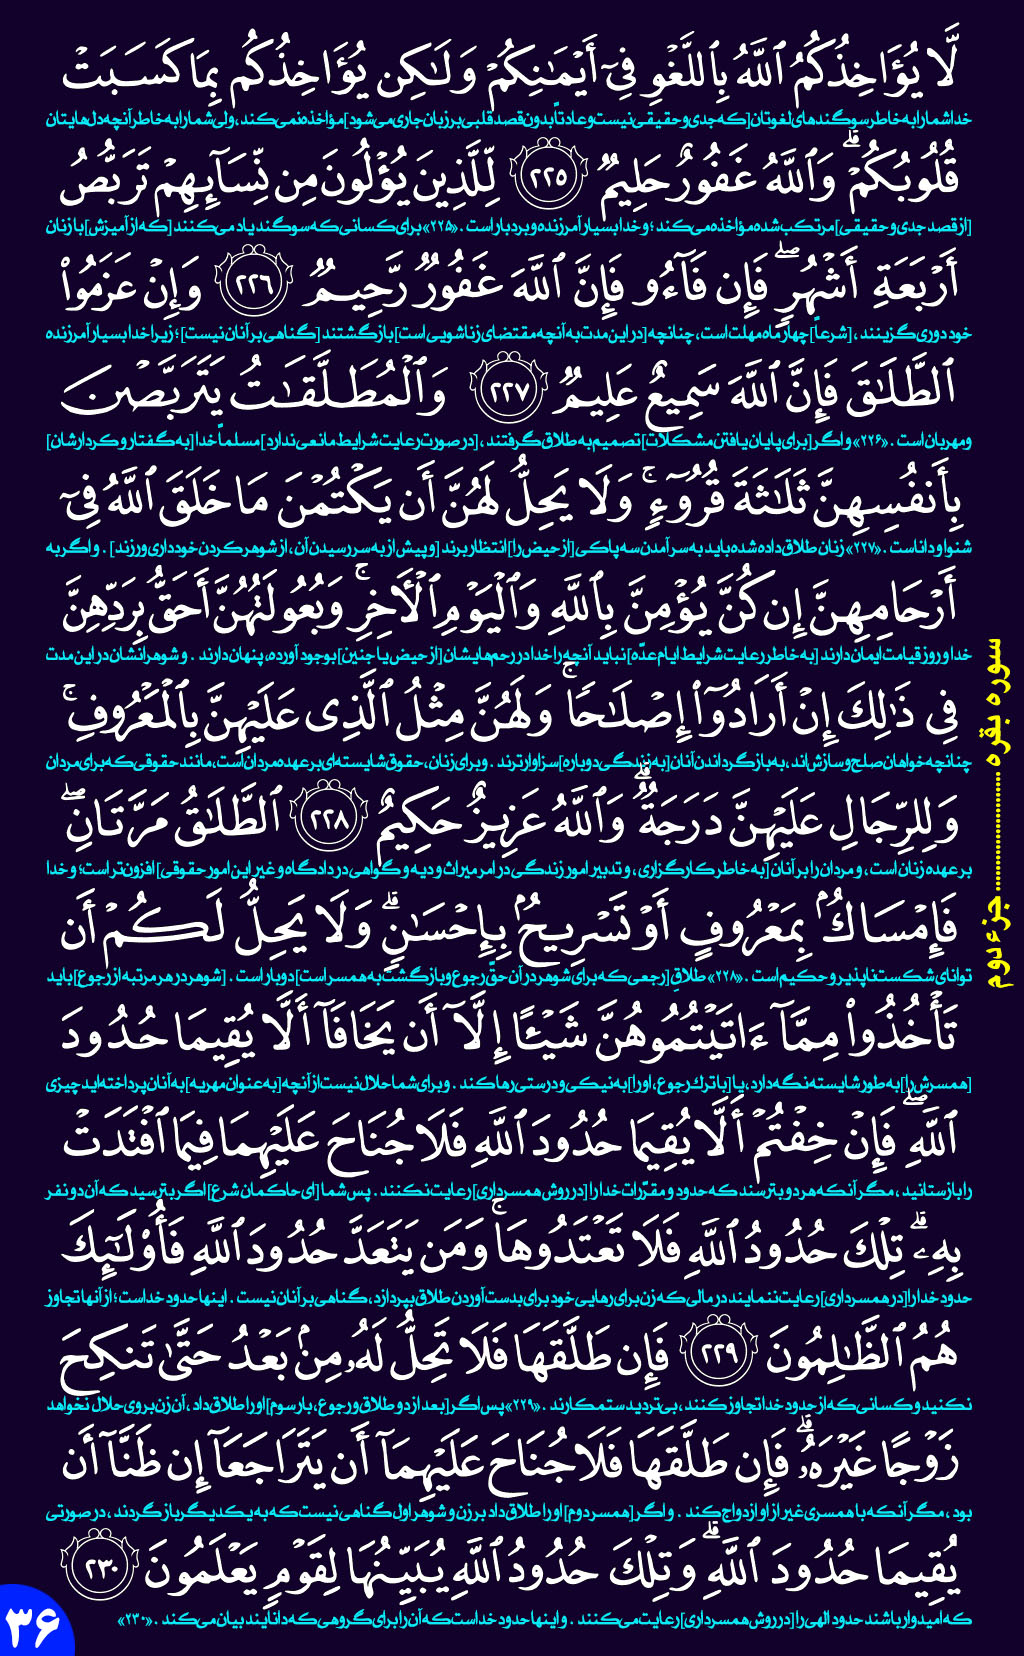 لَّا يُؤَاخِذُكُمُ ٱللَّهُ بِٱللَّغْوِ فِىٓ أَيْمَٰنِكُمْ وَلَٰكِن يُؤَاخِذُكُم بِمَا كَسَبَتْ
خدا شما را به خاطر سوگندهای لغوتان [که جدی و حقیقی نیست و عادتاً بدون قصد قلبی بر زبان جاری می‌شود] مؤاخذه نمی‌کند، ولی شما را به خاطر آنچه دل‌هایتان
قُلُوبُكُمْ ۗ وَٱللَّهُ غَفُورٌ حَلِيمٌ ٢٢٥ لِّلَّذِينَ يُؤْلُونَ مِن نِّسَآئِهِمْ تَرَبُّصُ
[از قصد جدی و حقیقی] مرتکب شده مؤاخذه می‌کند؛ و خدا بسیار آمرزنده و بردبار است. «۲۲۵» برای کسانی که سوگند یاد می‌کنند [که از آمیزش] با زنان
أَرْبَعَةِ أَشْهُرٍ ۖ فَإِن فَآءُو فَإِنَّ ٱللَّهَ غَفُورٌ رَّحِيمٌ ٢٢٦ وَإِنْ عَزَمُوا۟
خود دوری گزینند، [شرعاً] چهار ماه مهلت است، چنانچه [در این مدت به آنچه مقتضای زناشویی است] بازگشتند [گناهی بر آنان نیست]؛ زیرا خدا بسیار آمرزنده
ٱلطَّلَٰقَ فَإِنَّ ٱللَّهَ سَمِيعٌ عَلِيمٌ ٢٢٧ وَٱلْمُطَلَّقَٰتُ يَتَرَبَّصْنَ
و مهربان است. «۲۲۶» و اگر [برای پایان یافتن مشکلات] تصمیم به طلاق گرفتند، [در صورت رعایت شرایط مانعی ندارد] مسلماً خدا [به گفتار و کردارشان]
بِأَنفُسِهِنَّ ثَلَٰثَةَ قُرُوٓءٍ ۚ وَلَا يَحِلُّ لَهُنَّ أَن يَكْتُمْنَ مَا خَلَقَ ٱللَّهُ فِىٓ
شنوا و داناست. «۲۲۷» زنان طلاق داده شده باید به سر آمدن سه پاکی [از حیض را] انتظار برند [و پیش از به سر رسیدن آن، از شوهر کردن خودداری ورزند]. و اگر به
أَرْحَامِهِنَّ إِن كُنَّ يُؤْمِنَّ بِٱللَّهِ وَٱلْيَوْمِ ٱلْـَٔاخِرِ ۚ وَبُعُولَتُهُنَّ أَحَقُّ بِرَدِّهِنَّ
خدا و روز قیامت ایمان دارند [به خاطر رعایت شرایط ایام عدّه] نباید آنچه را خدا در رحم‌هایشان [از حیض یا جنین] بوجود آورده، پنهان دارند. و شوهرانشان در این مدت
فِى ذَٰلِكَ إِنْ أَرَادُوٓا۟ إِصْلَٰحًا ۚ وَلَهُنَّ مِثْلُ ٱلَّذِى عَلَيْهِنَّ بِٱلْمَعْرُوفِ ۚ
چنانچه خواهان صلح و سازش‌اند، به بازگرداندن آنان [به زندگی دوباره] سزاوارترند. و برای زنان، حقوق شایسته‌ای بر عهده مردان است، مانند حقوقی که برای مردان
وَلِلرِّجَالِ عَلَيْهِنَّ دَرَجَةٌ ۗ وَٱللَّهُ عَزِيزٌ حَكِيمٌ ٢٢٨ ٱلطَّلَٰقُ مَرَّتَانِ ۖ
بر عهده زنان است، و مردان را بر آنان [به خاطر کارگزاری، و تدبیر امور زندگی در امر میراث و دیه و گواهی در دادگاه و غیر این امور حقوقی] افزون‌تر است؛ و خدا
فَإِمْسَاكٌۢ بِمَعْرُوفٍ أَوْ تَسْرِيحٌۢ بِإِحْسَٰنٍ ۗ وَلَا يَحِلُّ لَكُمْ أَن
توانای شکست ناپذیر و حکیم است. «۲۲۸» طلاق [رجعی که برای شوهر در آن حقّ رجوع و بازگشت به همسر است] دوبار است. [شوهر در هر مرتبه از رجوع] باید
تَأْخُذُوا۟ مِمَّآ ءَاتَيْتُمُوهُنَّ شَيْـًٔا إِلَّآ أَن يَخَافَآ أَلَّا يُقِيمَا حُدُودَ
[همسرش را] به طور شایسته نگه دارد، یا [با ترک رجوع، او را] به نیکی و درستی رها کند. و برای شما حلال نیست از آنچه [به عنوان مهریه] به آنان پرداخته‌اید چیزی
ٱللَّهِ ۖ فَإِنْ خِفْتُمْ أَلَّا يُقِيمَا حُدُودَ ٱللَّهِ فَلَا جُنَاحَ عَلَيْهِمَا فِيمَا ٱفْتَدَتْ
را باز ستانید، مگر آنکه هر دو بترسند که حدود و مقرّرات خدا را [در روش همسرداری] رعایت نکنند. پس شما [ای حاکمان شرع] اگر بترسید که آن دو نفر
بِهِۦ ۗ تِلْكَ حُدُودُ ٱللَّهِ فَلَا تَعْتَدُوهَا ۚ وَمَن يَتَعَدَّ حُدُودَ ٱللَّهِ فَأُو۟لَٰٓئِكَ
حدود خدا را [در همسرداری] رعایت ننمایند در مالی که زن برای رهایی خود برای بدست آوردن طلاق بپردازد، گناهی بر آنان نیست. اینها حدود خداست؛ از آنها تجاوز
هُمُ ٱلظَّٰلِمُونَ ٢٢٩ فَإِن طَلَّقَهَا فَلَا تَحِلُّ لَهُۥ مِنۢ بَعْدُ حَتَّىٰ تَنكِحَ
نکنید و کسانی که از حدود خدا تجاوز کنند، بی‌تردید ستمکارند. «۲۲۹» پس اگر [بعد از دو طلاق و رجوع، بار سوم] او را طلاق داد، آن زن بر وی حلال نخواهد
زَوْجًا غَيْرَهُۥ ۗ فَإِن طَلَّقَهَا فَلَا جُنَاحَ عَلَيْهِمَآ أَن يَتَرَاجَعَآ إِن ظَنَّآ أَن
بود، مگر آنکه با همسری غیر از او ازدواج کند. و اگر [همسر دوم] او را طلاق داد بر زن و شوهر اول گناهی نیست که به یکدیگر بازگردند، در صورتی
يُقِيمَا حُدُودَ ٱللَّهِ ۗ وَتِلْكَ حُدُودُ ٱللَّهِ يُبَيِّنُهَا لِقَوْمٍ يَعْلَمُونَ ٢٣٠
که امیدوار باشند حدود الهی را [در روش همسرداری] رعایت می‌کنند. و اینها حدود خداست که آن را برای گروهی که دانایند بیان می‌کند. «۲۳۰»
سوره بقره ........................ جزء دوم
۳۶